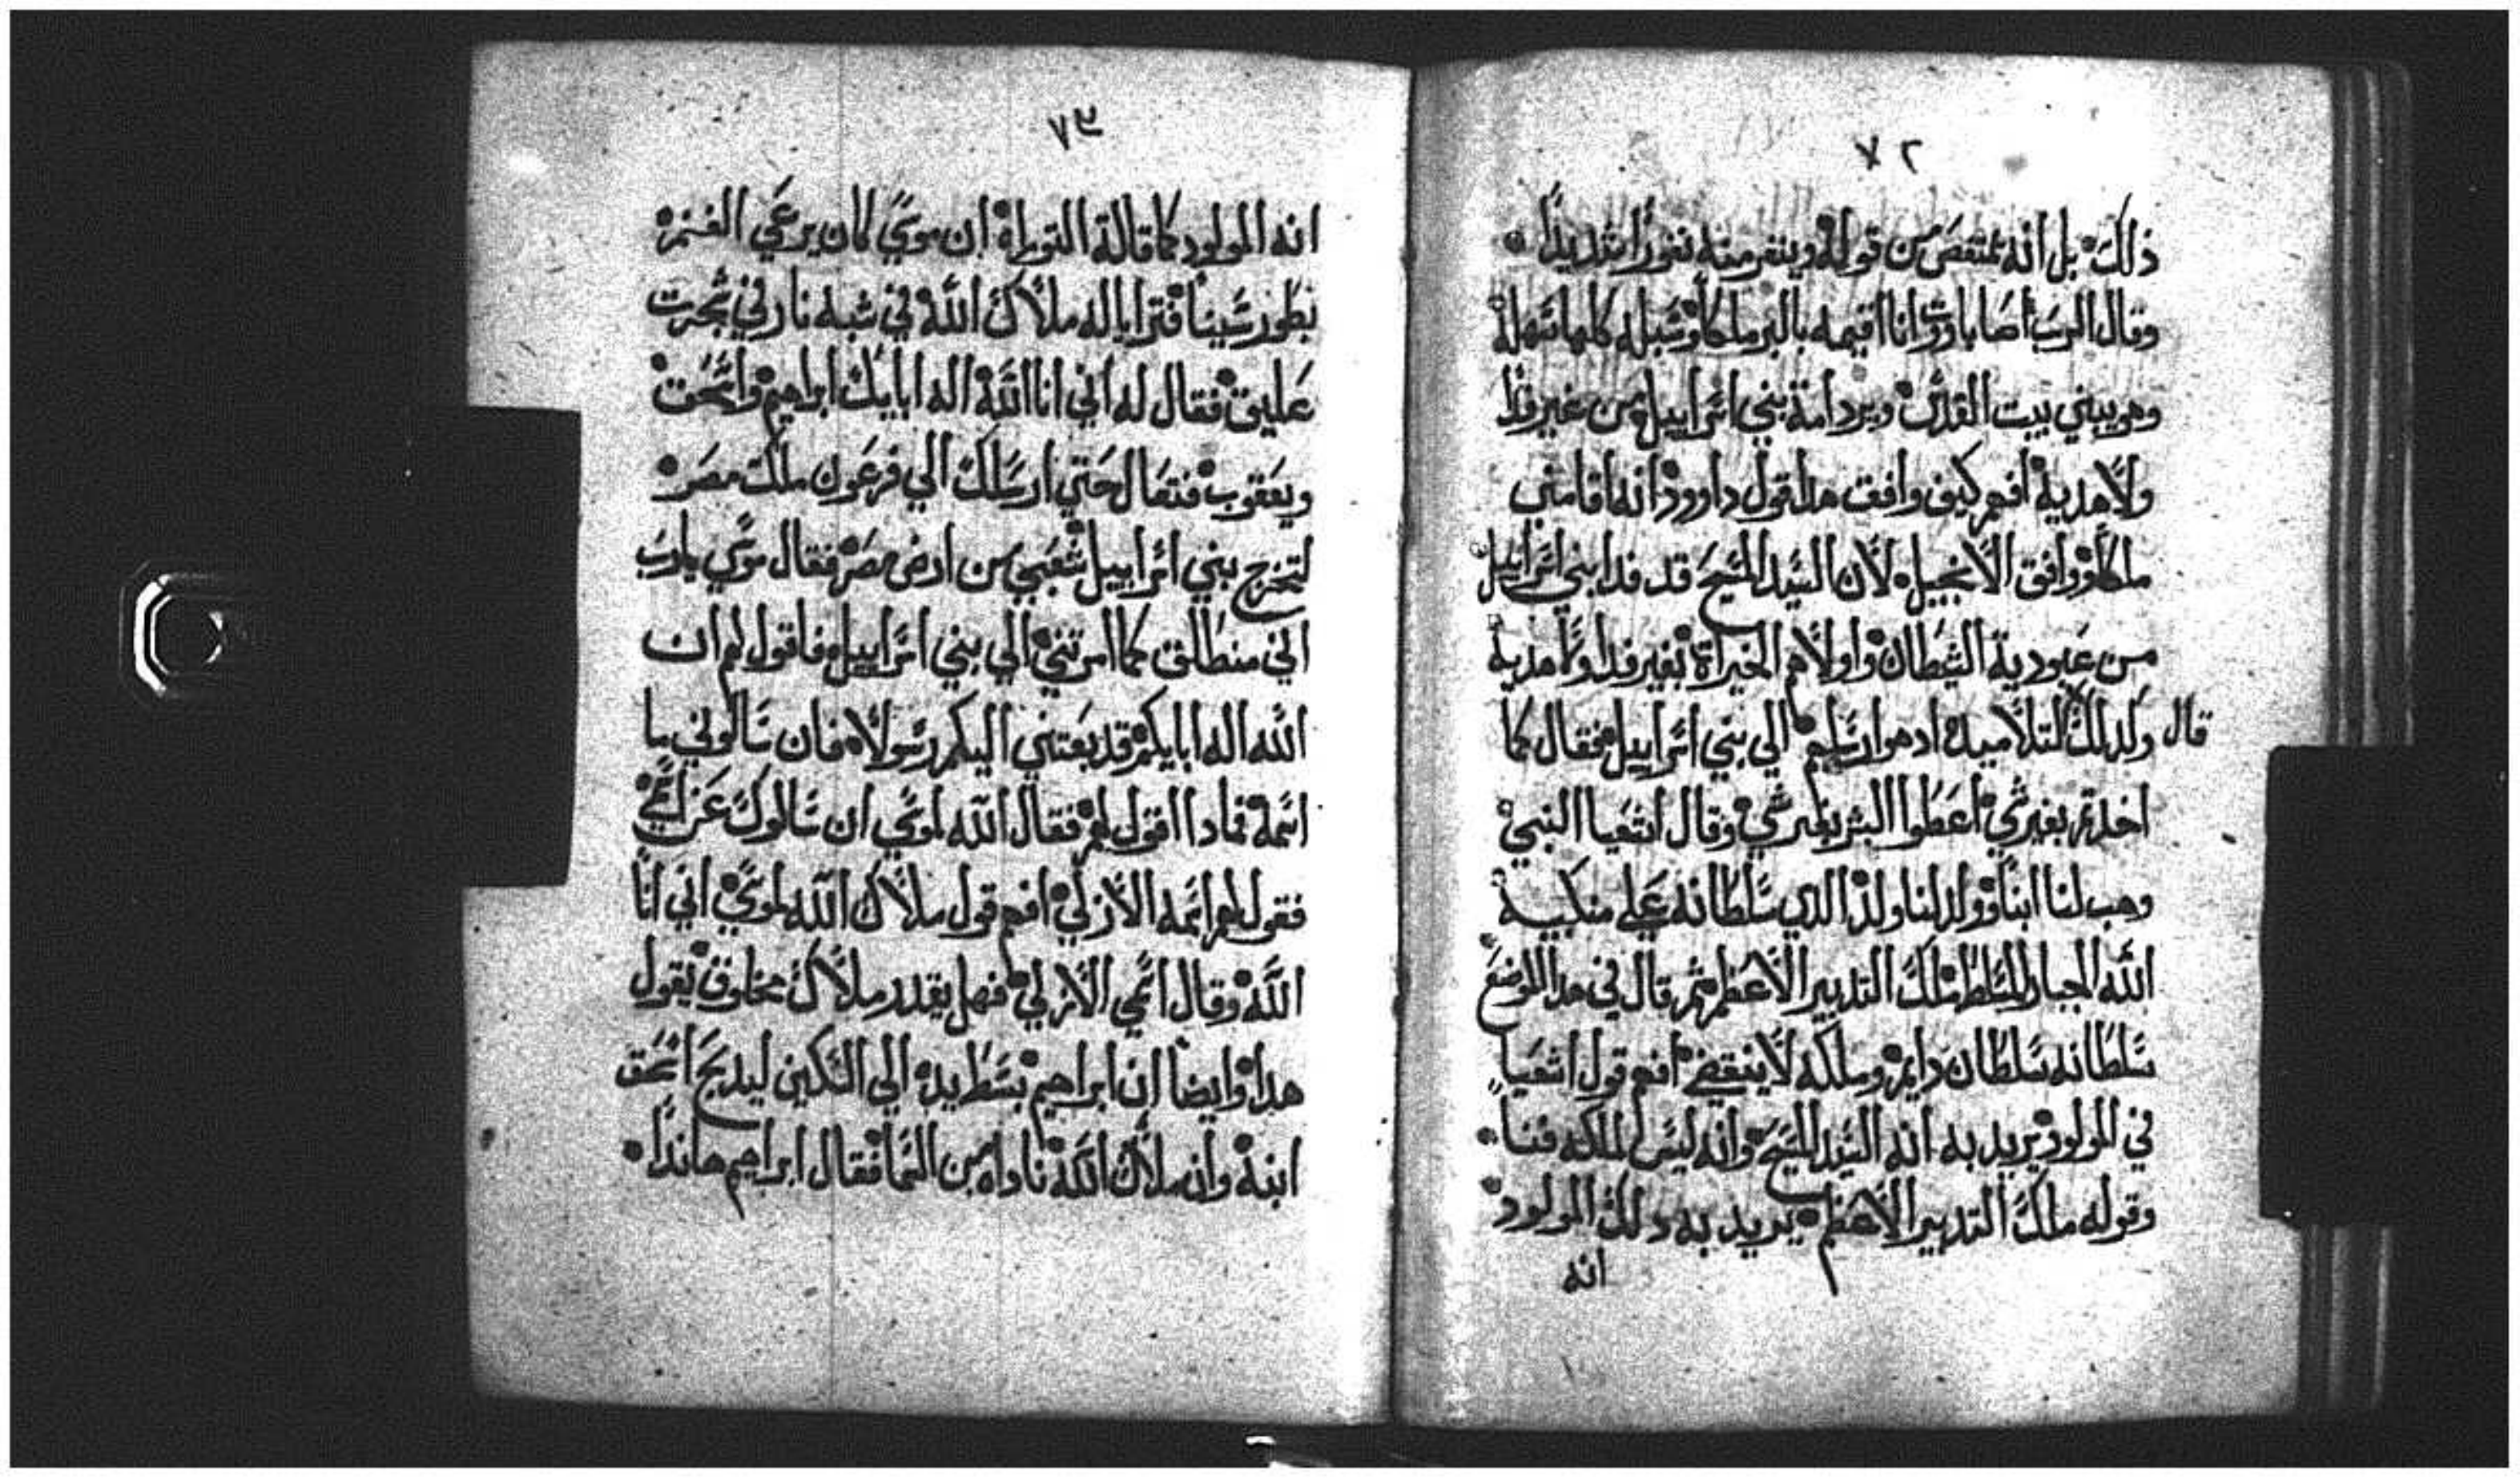 ٧٢
ذلك بل انه ممتغص من قوله وينفر منه نفورا شديدا
وقال الرب ايضا باووت وانا اقيمه بالبر ملكا وسبله كلها سهله
وهو يبني بيت القدس ويرد امة بني اسراييل من غير فدا
ولا هدية افهم كيف وافقت هدا قول داوود انه اقامني
ملكا ووافق الانجيل لان السيد المسيح قد فدا بني اسراييل
من عبودية الشيطان واولاهم الخيراة بغير فدا ولا هدية
قال ولدلك لتلاميده ادهوا رسلهم الي بني اسراييل فقال كما
اخدتم بغير شي اعطوا البشر بغير شي وقال اشعيا النبي
وهب لنا ابنا وولد لنا ولد الدي سلطانه علي منكبيه
الله الجبار المسلط ملك التدبير الاعظم ثم قال في هدا الموضع
سلطانه سلطان دايم وملكه لا ينقضي افهم قول اشعيا
في المولود يريد به انه السيد المسيح وانه ليس لملكه فنا
وقوله ملك التدبير الاعظم يريد به دلك المولود
انه
٧٣
انه المولود كما قالة التوراه ان موسي كان يرعي الغنم
بطور سينا فترايا له ملاك الله في شبه نار في شجرت
عليق فقال له اني انا الله اله ابايك ابراهيم واسحق
ويعقوب فتعال حتي ارسلك الي فرعون ملك مصر
لتخرج بني اسراييل شعبي من ارض مصر فقال موسي يا رب
اني منطلق كما امرتني الي بني اسراييل فاقول لهم ان
الله اله ابايكم قد بعتني اليكم رسولا فان سالوني ما
اسمه فمادا اقول لهم فقال الله لموسي ان سالوك عن اسمي
فقول لهم اسمه الازلي افهم قول ملاك الله لموسي اني انا
الله وقال اسمي الازلي فهل يقدر ملاك مخلوق يقول
هدا وايضا ان ابراهيم بسط يده الي السكين ليدبح اسحق
ابنه وان ملاك الله ناداه من السما فقال ابراهيم هاندا